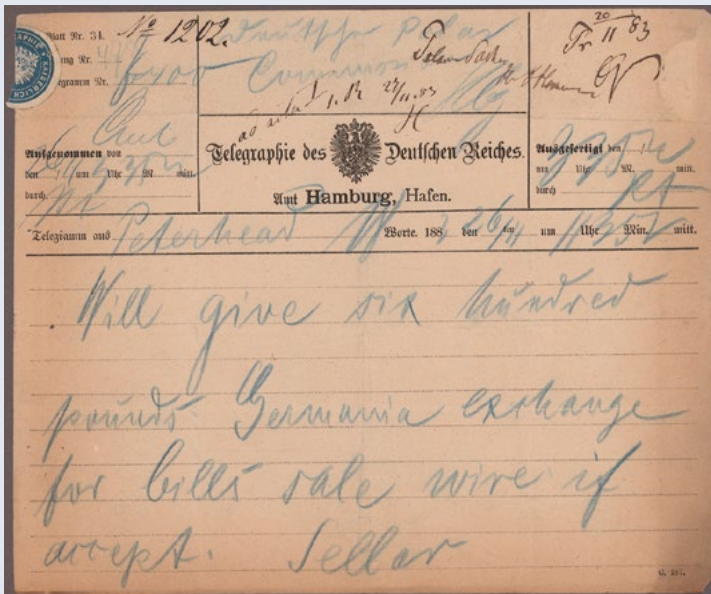 Blatt Nr. 34.
Nº 1202.
Deutsche Polar
Commission
Telegramm Nr.
20/11 83
Aufgenommen von
den um Uhr M. mitt.
durch
Telegraphie des Deutschen Reiches.
Amt Hamburg, Hafen.
Ausgefertigt den
um Uhr M. mitt.
durch
Telegramm aus Peterhead Worte. 188 den 26/11 ten um 11 35 Uhr Min. mitt.
Will give six hundred
pounds Germania exchange
for bills sale wire if
accept. Sellar